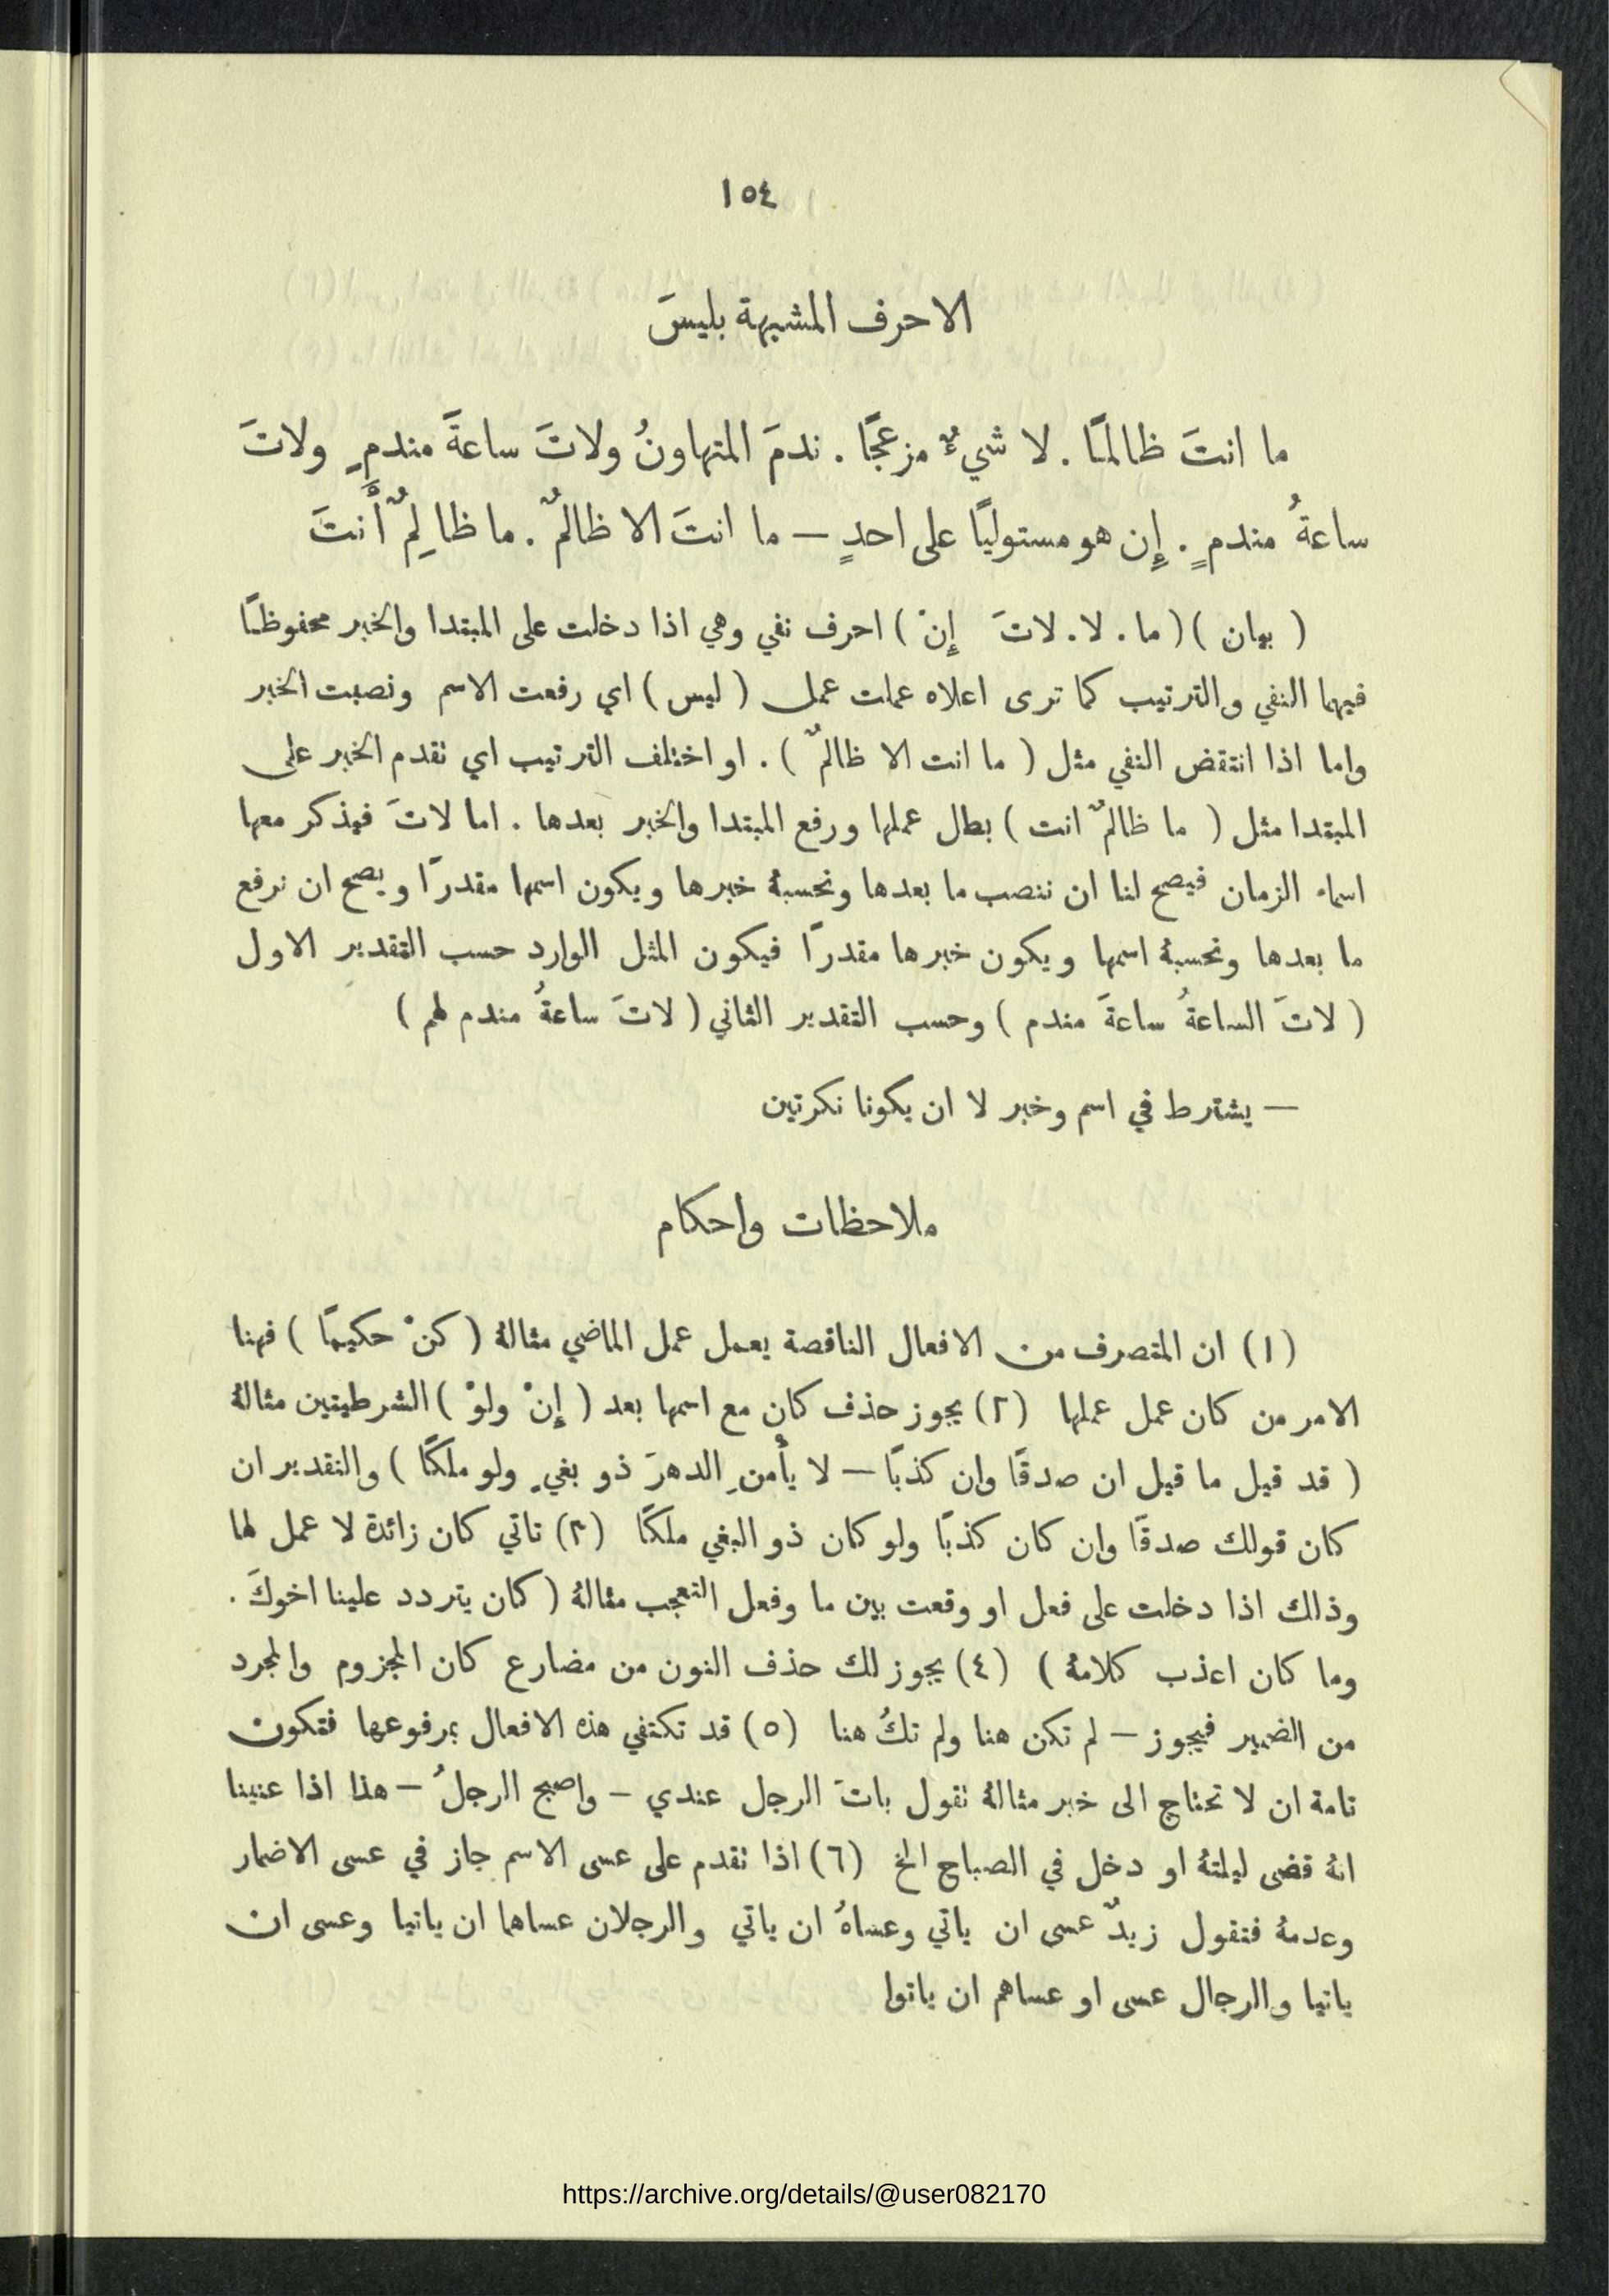 ١٥٤
الاحرف المشبهة بليسَ
ما انتَ ظالمًا . لا شيءٌ مزعجًا . ندمَ المتهاونُ ولاتَ ساعةَ مندمٍ ولاتَ
ساعةُ مندمٍ . إِن هو مستوليًا على احدٍ — ما انتَ الا ظالمٌ . ما ظالِمٌ أَنتَ
( بيان ) ( ما . لا . لاتَ إِنْ ) احرف نفي وهي اذا دخلت على المبتدا والخبر محفوظًا
فيهما النفي والترتيب كما ترى اعلاه عملت عمل ( ليس ) اي رفعت الاسم ونصبت الخبر
واما اذا انتقض النفي مثل ( ما انت الا ظالمٌ ) . او اختلف الترتيب اي تقدم الخبر على
المبتدا مثل ( ما ظالمٌ انت ) بطل عملها ورفع المبتدا والخبر بعدها . اما لاتَ فيذكر معها
اسماء الزمان فيصح لنا ان ننصب ما بعدها ونحسبهُ خبرها ويكون اسمها مقدرًا ويصح ان نرفع
ما بعدها ونحسبهُ اسمها ويكون خبرها مقدرًا فيكون المثل الوارد حسب التقدير الاول
( لاتَ الساعةُ ساعةَ مندم ) وحسب التقدير الثاني ( لاتَ ساعةُ مندم لهم )
— يشترط في اسم وخبر لا ان يكونا نكرتين
ملاحظات واحكام
(١) ان المتصرف من الافعال الناقصة يعمل عمل الماضي مثالهُ ( كنْ حكيمًا ) فهنا
الامر من كان عمل عملها (٢) يجوز حذف كان مع اسمها بعد ( إِنْ ولوْ ) الشرطيتين مثالهُ
( قد قيل ما قيل ان صدقًا وان كذبًا — لا يأْمنِ الدهرَ ذو بغيٍ ولو ملكًا ) والتقدير ان
كان قولك صدقًا وان كان كذبًا ولو كان ذو البغي ملكًا (٣) تاتي كان زائدة لا عمل لها
وذلك اذا دخلت على فعل او وقعت بين ما وفعل التعجب مثالهُ ( كان يتردد علينا اخوكَ .
وما كان اعذب كلامهُ ) (٤) يجوز لك حذف النون من مضارع كان المجزوم والمجرد
من الضمير فيجوز — لم تكن هنا ولم تكُ هنا (٥) قد تكتفي هذه الافعال بمرفوعها فتكون
تامة ان لا تحتاج الى خبر مثالهُ تقول باتَ الرجل عندي — واصبح الرجلُ — هذا اذا عنينا
انهُ قضى ليلتهُ او دخل في الصباح الخ (٦) اذا تقدم على عسى الاسم جاز في عسى الاضمار
وعدمهُ فتقول زيدٌ عسى ان ياتي وعساهُ ان ياتي والرجلان عساهما ان ياتيا وعسى ان
ياتيا والرجال عسى او عساهم ان ياتوا
https://archive.org/details/@user082170